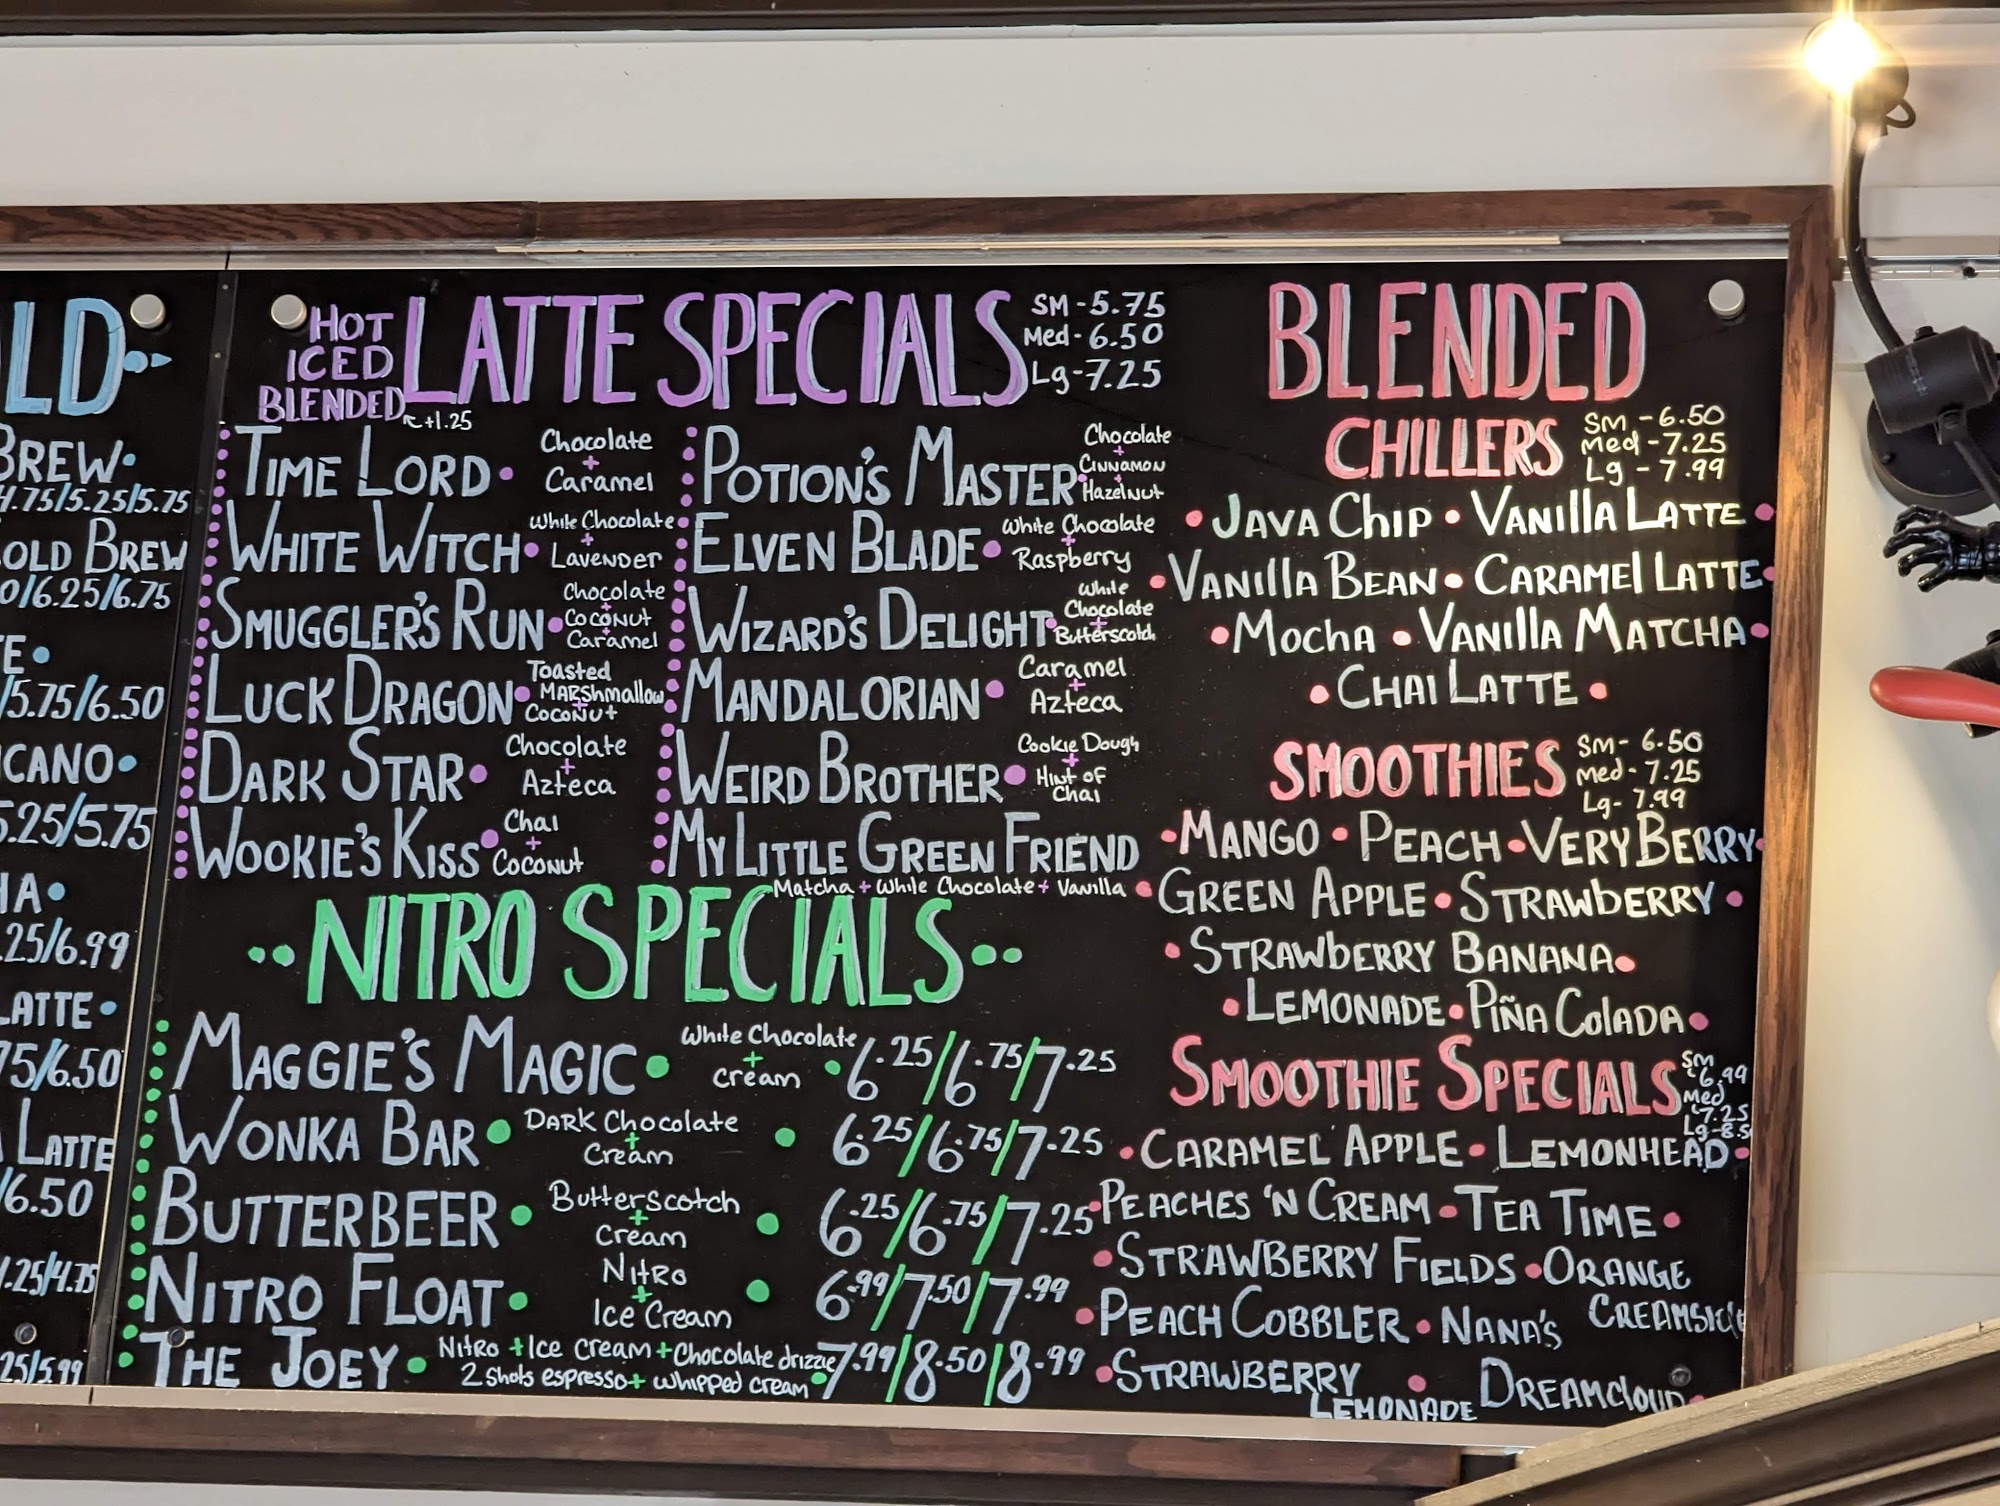 LD
BREW
4.75/5.25/5.75
OLD BREW
0/6.25/6.75
E
/5.75/6.50
CANO
5.25/5.75
HA
.25/6.99
LATTE
75/6.50
LATTE
/6.50
.25/4.75
25/5.99
HOT
ICED
BLENDED
+1.25
LATTE SPECIALS
SM - 5.75
Med - 6.50
Lg - 7.25
TIME LORD
Chocolate
+
Caramel
WHITE WITCH
White Chocolate
+
LAVENDER
SMUGGLER'S RUN
Chocolate
+
COCONUT
Caramel
LUCK DRAGON
Toasted
MARShmallow
+
COCONUT
DARK STAR
Chocolate
+
Azteca
WOOKIE'S KISS
Chai
+
COCONUT
POTION'S MASTER
Chocolate
+
CINNAMON
+
HazelNut
ELVEN BLADE
White Chocolate
+
Raspberry
WIZARD'S DELIGHT
White
Chocolate
+
Butterscotch
MANDALORIAN
Caramel
+
Azteca
WEIRD BROTHER
Cookie Dough
+
HINT OF
Chai
MY LITTLE GREEN FRIEND
Matcha + White Chocolate + Vanilla
NITRO SPECIALS
MAGGIE'S MAGIC
White Chocolate
+
cream
6.25/6.75/7.25
WONKA BAR
DARK Chocolate
+
Cream
6.25/6.75/7.25
BUTTERBEER
Butterscotch
+
Cream
6.25/6.75/7.25
NITRO FLOAT
NITRO
+
Ice Cream
6.99/7.50/7.99
THE JOEY
Nitro + Ice cream + Chocolate drizzle
2 Shots espresso + whipped cream
7.99/8.50/8.99
BLENDED
CHILLERS
SM - 6.50
Med - 7.25
Lg - 7.99
JAVA CHIP • VANIlla LATTE
VANIlla BEAN • CARAMEl LATTE
MOCHA • VANIlla MATCHA
CHAI LATTE
SMOOTHIES
SM - 6.50
Med - 7.25
Lg - 7.99
MANGO • PEACH • VERY BERRY
GREEN APPLE • STRAWbERRY
STRAWbERRY BANANA
LEMONADE • PIÑA COlADA
SMOOTHIE SPECIALS
SM
6.99
Med
7.25
Lg - 8.5
CARAMEL APPLE • LEMONHEAD
PEACHES 'N CREAM • TEA TIME
STRAWBERRY FIELDS • ORANGE
CREAMSICLE
PEACH COBBLER • NANA'S
STRAWBERRY
LEMONADE
DREAMCLOUD